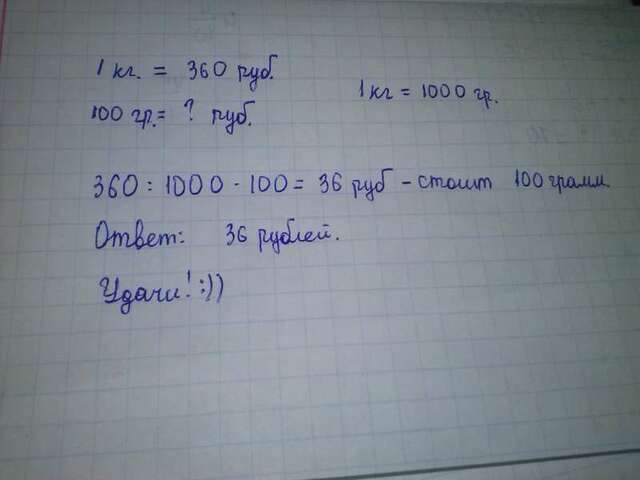 1 кг. = 360 руб.
1 кг = 1000 гр.
100 гр. = ? руб.
360 : 1000 · 100 = 36 руб - стоит 100 грамм.
Ответ: 36 рублей.
Удачи! :))